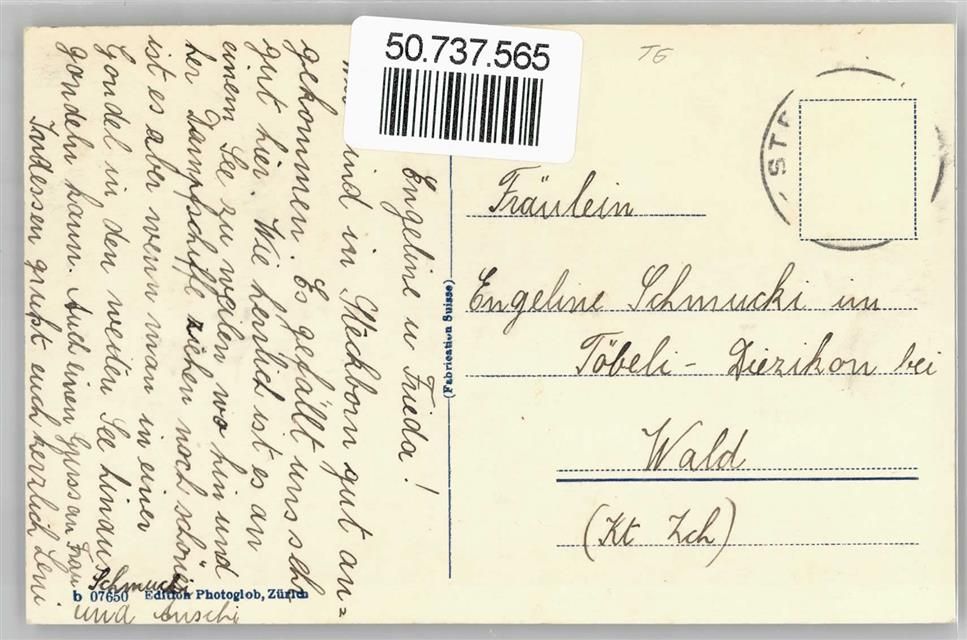 50.737.565
TG
STA
Engeline u Frieda!
sind in Steckborn gut an=
gekommen. Es gefällt uns sehr
gut hier. Wie herrlich ist es an
einem See zu weilen wo hin und
her Dampfschiffe ziehen noch schöner
ist es aber wenn man in einer
Gondel in den weiten See hinaus
gondeln kann. Auch einen Gruss an Frau
Schmucki
Indessen grüsst euch herzlich Leni
und
(Fabrication Suisse)
Fräulein
Engeline Schmucki im
Töbeli - Diezikon bei
Wald
(Kt Zch)
b 07650 Edition Photoglob, Zürich